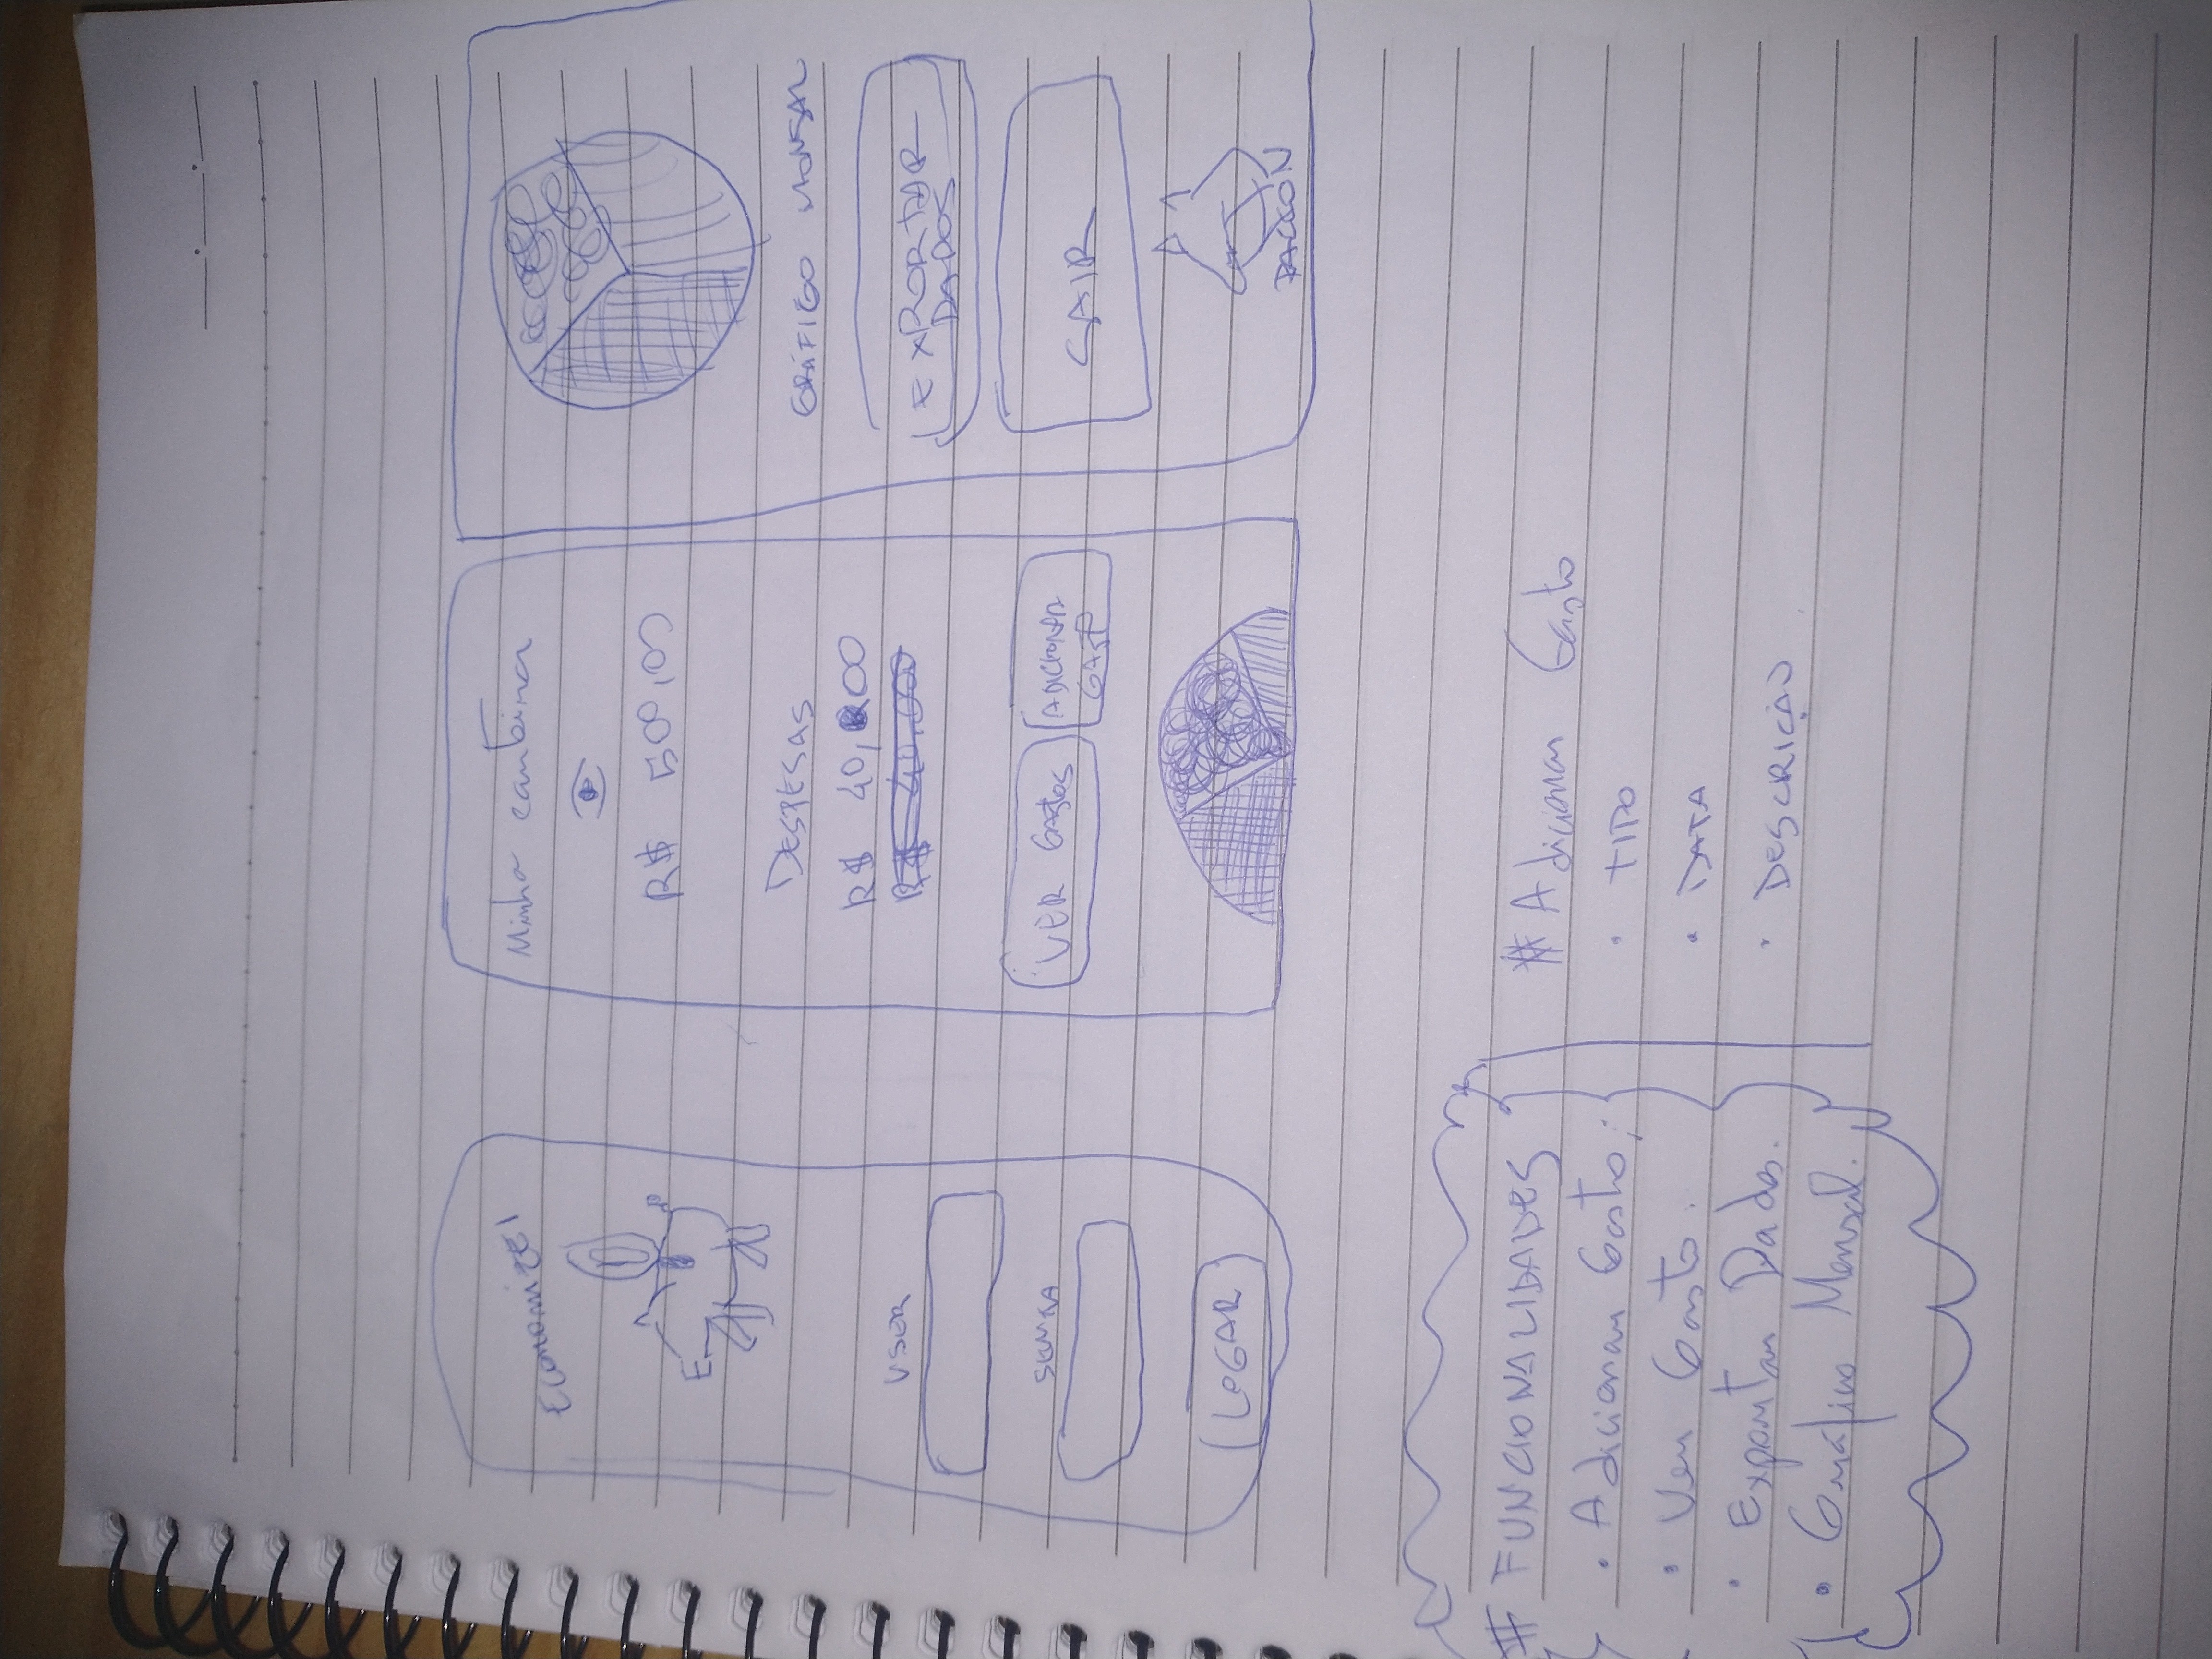 Economizei
USER
SENHA
LOGAR
Minha carteira
R$ 500,00
DESPESAS
R$ 40,00
VER GASTOS
ADICIONAR
GASTO
GRÁFICO MENSAL
EXPORTAR
DADOS
SAIR
# FUNCIONALIDADES
• Adicionar Gasto;
• Ver Gasto.
• Exportar Dados.
• Gráfico Mensal.
# Adicionar Gasto
• TIPO
• DATA
• DESCRIÇÃO